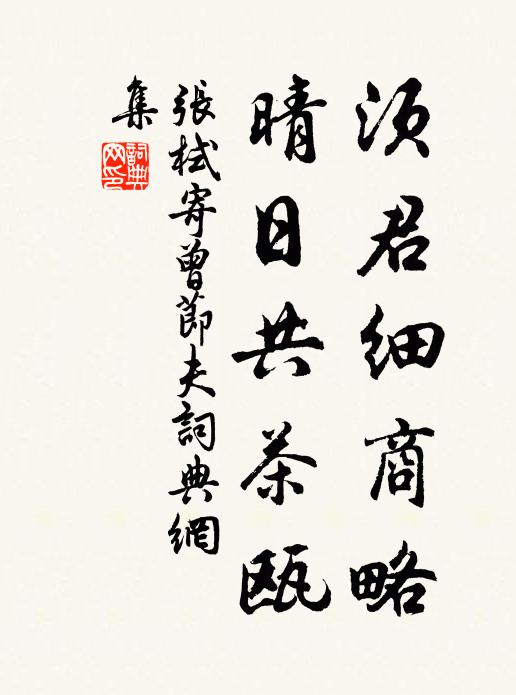 須君細商略
晴日共茶甌
張栻寄曾節夫詞典網
集
詞典
网印